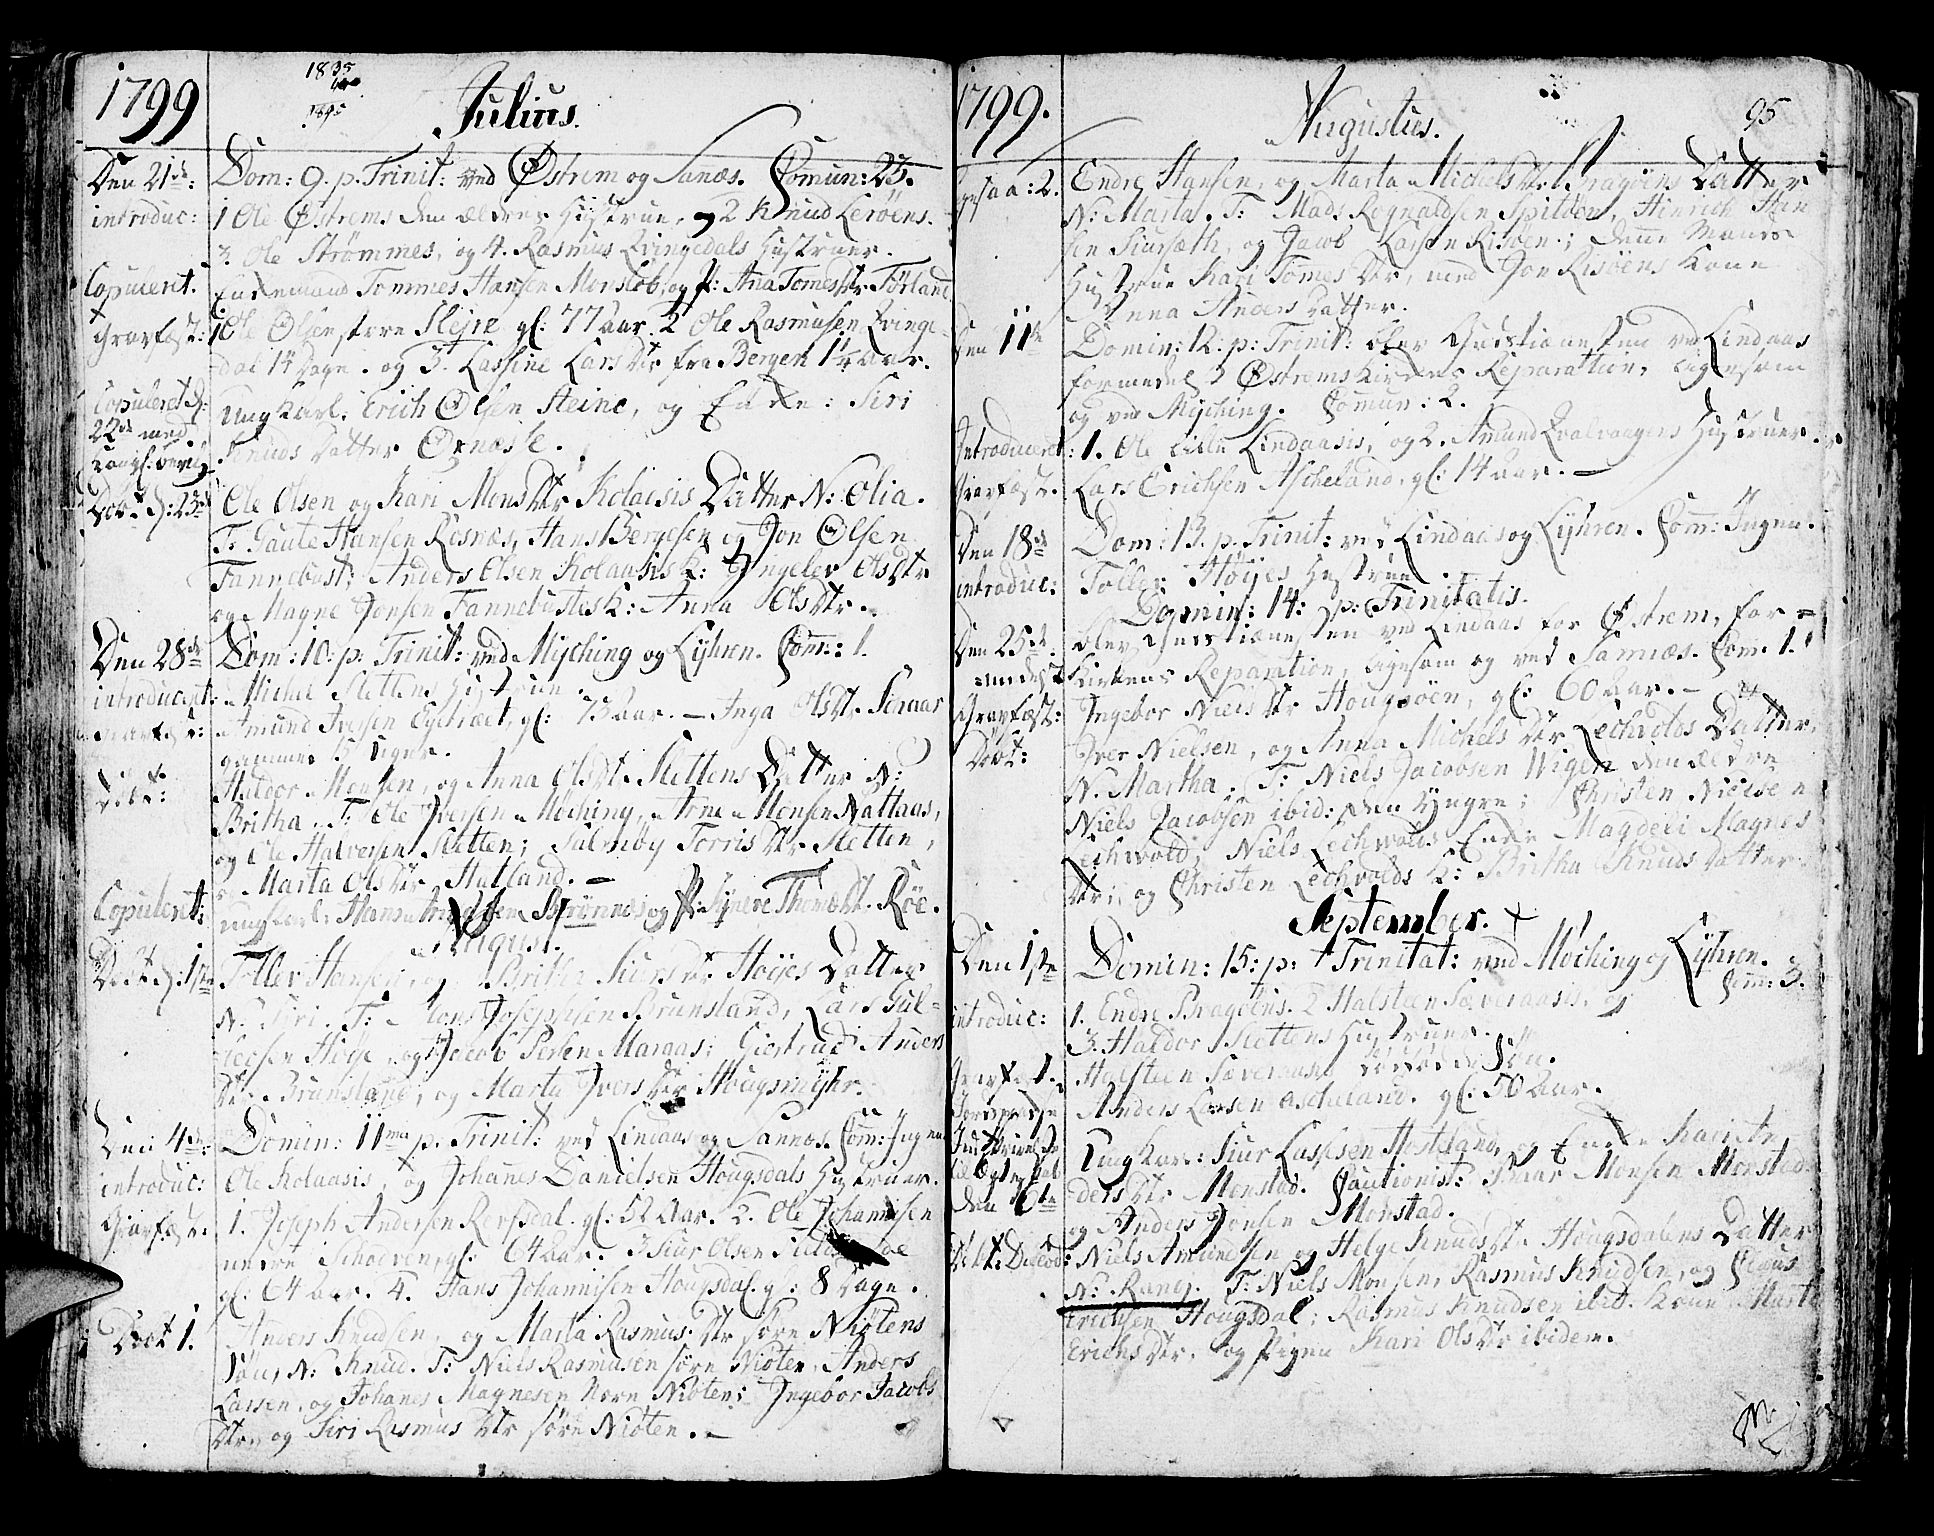 1799
1835
1895
Julius.
Den 21de: Dom: 9. p. Trinit: ved Østrem og Sanæs. Comun: 23.
introduc: 1 Ole Østrems den ældres Hustrue, og 2 Knud Lerøens.
3. Ole Strømmes, og 4. Rasmus Qvingedals Hustruer.
Copuleret. Enkemand Tommes Hansen Monslob, og P: Ana Tomesdtr Førland
Gravfæst: 1 Ole Olsen store Slejre gl: 77 aar. 2 Ole Rasmusen Qvinge-
dal 14 Dage. og 3. Lassine Larsdtr fra Bergen 1¼ Aar.
Copuleret d: 22de med Ungkarl. Erich Olsen Steine, og Enke: Siri
Knuds Datter Oxnæste.
Døbt d: 23de Ole Olsen og Kari Monsdtr Kolaasis Datter N: Olia.
T: Gaute Hansen Risnæs, Hans Børgesen og Jon Olsen
Fannebust; Anders Olsen Kolaasis K: Ingeler Olsdtr
og Magne Jonsen Fannebustes K: Anna Olsdtr.
Den 28de Dom: 10: p: Trinit: ved Myching og Lyhren. Com: 1.
introduceret: Michel Slettens Hustrue.
Gravfæst: Amund Iversen Eyetræet, gl: 73 Aar. — Inga Olsdtr Skaar
gammel 15 Uger.
Døbt: Haldor Monsen, og Anna Olsdtr Slettens Datter N:
Britha. T: Ole Iversen Moching, Arne Monsen Nattaas,
og Ole Halversen Sletten; Salmøy Torrisdtr Sletten,
Marta Olsdtr Hatland. —
Copuleret: ungkarl: Hans Brønnæs og P: Thomædtr Røe.
August.
Døbt d: 1ste Toller Hansen, og Britha Siursdtr Høyes Datter
N: Syri. T: Mons Josephsen Brunsland, Lars Gul-
lecsen Høye, og Jacob Persen Maraas; Giertrud Anders
Dtr Brunsland, og Marta Iversdtr Hougsmyhr.
Den 4de: Domin: 11ma p. Trinit: ved Lindaas og Sannæs. Com: Ingen
introduc: Ole Kolaasis, og Johanes Danielsen Hougsdals Hustruer.
Gravfæst. 1. Joseph Andersen Rørsdal. gl: 52 Aar. 2. Ole Johannisen
nedre Schodven, gl: 64 aar. 3 Siur Olsen
gl. 64 aar. 4. Hans Johannisen Hougsdal. gl: 8 Dage.
Døbt 1. Anders Knudsen, og Marta Rasmusdtr søre Niøtens
Søn, N: Knud. T: Niels Rasmusen søre Niøten, Anders
Larsen, og Johanes Magnesen Nore Niøten; Ingebor Jacobs
Dtr og Siri Rasmusdtr søre Niøten. —
1799.
Augustus.
95
2. Endre Hansen, og Marta Michelsdtr Bragøens Datter
N: Marta. T: Mads Regnaldsen Spitøen, Hinrich Han
sen Siursæth, og Jacob Larsen Risøen; denne Mands
Hustrue Kari Tomesdtr, med Jon Risøens Kone
Anna Anders Datter.
Den 11te Domin: 12. p: Trinit: blev Gudstieneste ved Lindaas
formedelst Østrems Kirkes Reparation, ligesom
og ved Myching. Comun: 2.
Introduceret: 1. Ole lille Lindaasis, og 2. Amund Qvalvaagens Hustruer.
Gravfæst. Lars Erichsen Ascheland, gl: 14 aar. —
Den 18de Dom: 13. p. Trinit: ved Lindaas og Lyhren. Com: Ingen.
introduc: Toller Høyes Hustrue
Domin: 14: p: Trinitatis.
Den 25de blev Gudstienesten ved Lindaas for Østrem, for =
medelst Kirkens Reparation, ligesom og ved Sannæs. Com. 1.
Gravfæst: Ingebor Nielsdtr Hougsøen, gl: 60 Aar. —
Døbt: Iver Nielsen, og Anna Michelsdtr Lechvolds Datter,
N. Martha. T: Niels Jacobsen Wigen den ældre
Niels Jacobsen ibid: den Yngre; Christen Nielsen
Lechvold; Niels Lechvolds Enke Magdeli Magnes
dtr; og Christen Lechvolds K: Britha Knuds Datter.
September.
Den 1ste Domin: 15: p: Trinitat: ved Moching og Lyhren.
Com: 3.
introduc: 1. Endre Bragøens. 2 Halsteen Sæveraasis. og
3. Haldor Slettens Hustruer.
Gravfæst. Halsteen Sæveraas dødføde Søn.
Anders Larsen Ascheland. gl: 50 Aar.
Ungkarl: Siur Lassesen Hesteland, og Enke Kari An
den 6te dersdtr Monstad. Cautionist: Monsen Monstad
og Anders Jonsen Monstad.
Døbt Niels Amundsen og Helge Knudsdtr Hougsdalens Datter
N: Rang. T: Niels Monsen, Rasmus Knudsen, og Claus
Erichsen Hougsdal; Rasmus Knudsen ibid. Kone Marte
Erichsdtr. og Pigen Kari Olsdtr ibidem.